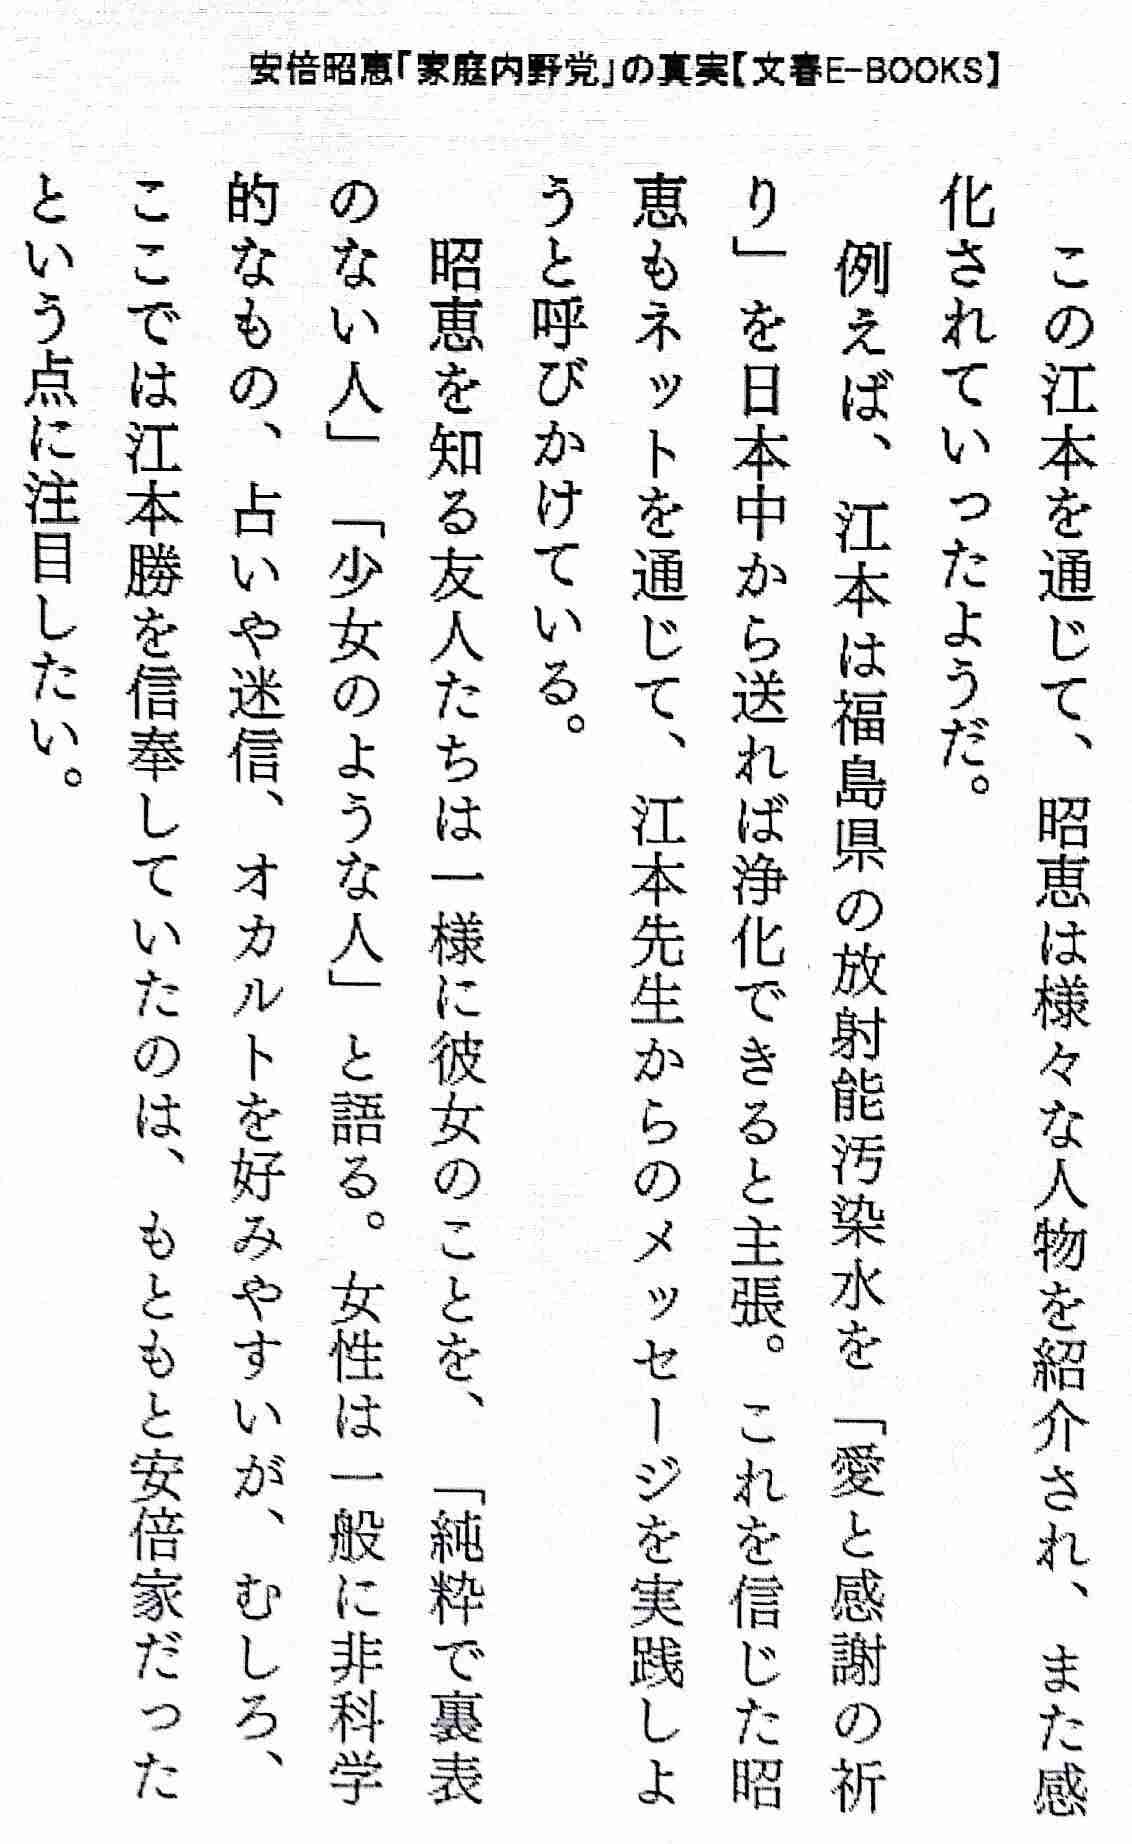 安倍昭恵「家庭内野党」の真実【文春E-BOOKS】
　この江本を通じて、昭恵は様々な人物を紹介され、また感
化されていったようだ。
　例えば、江本は福島県の放射能汚染水を「愛と感謝の祈
り」を日本中から送れば浄化できると主張。これを信じた昭
恵もネットを通じて、江本先生からのメッセージを実践しよ
うと呼びかけている。
　昭恵を知る友人たちは一様に彼女のことを、「純粋で裏表
のない人」「少女のような人」と語る。女性は一般に非科学
的なもの、占いや迷信、オカルトを好みやすいが、むしろ、
ここでは江本勝を信奉していたのは、もともと安倍家だった
という点に注目したい。